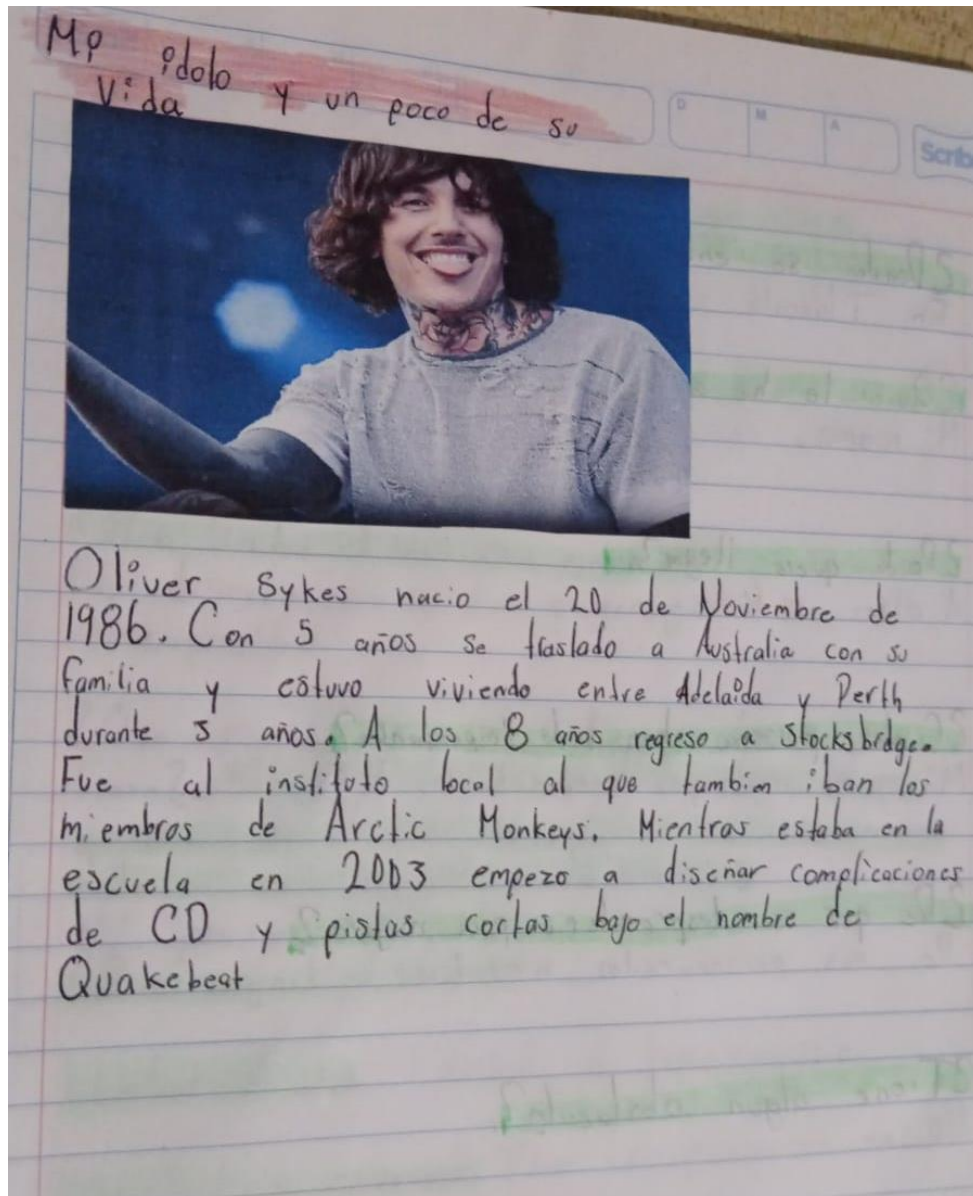 Mi idolo y un poco de su
Vida
D M A
Scrib
Oliver Sykes nacio el 20 de Noviembre de
1986. Con 5 años se traslado a Australia con su
familia y estuvo viviendo entre Adelaida y Perth
durante 5 años. A los 8 años regreso a Stocksbrdge.
Fue al instituto local al que tambien iban los
miembros de Arctic Monkeys. Mientras estaba en la
escuela en 2003 empezo a diseñar complicaciones
de CD y pistas cortas bajo el nombre de
Quakebeat